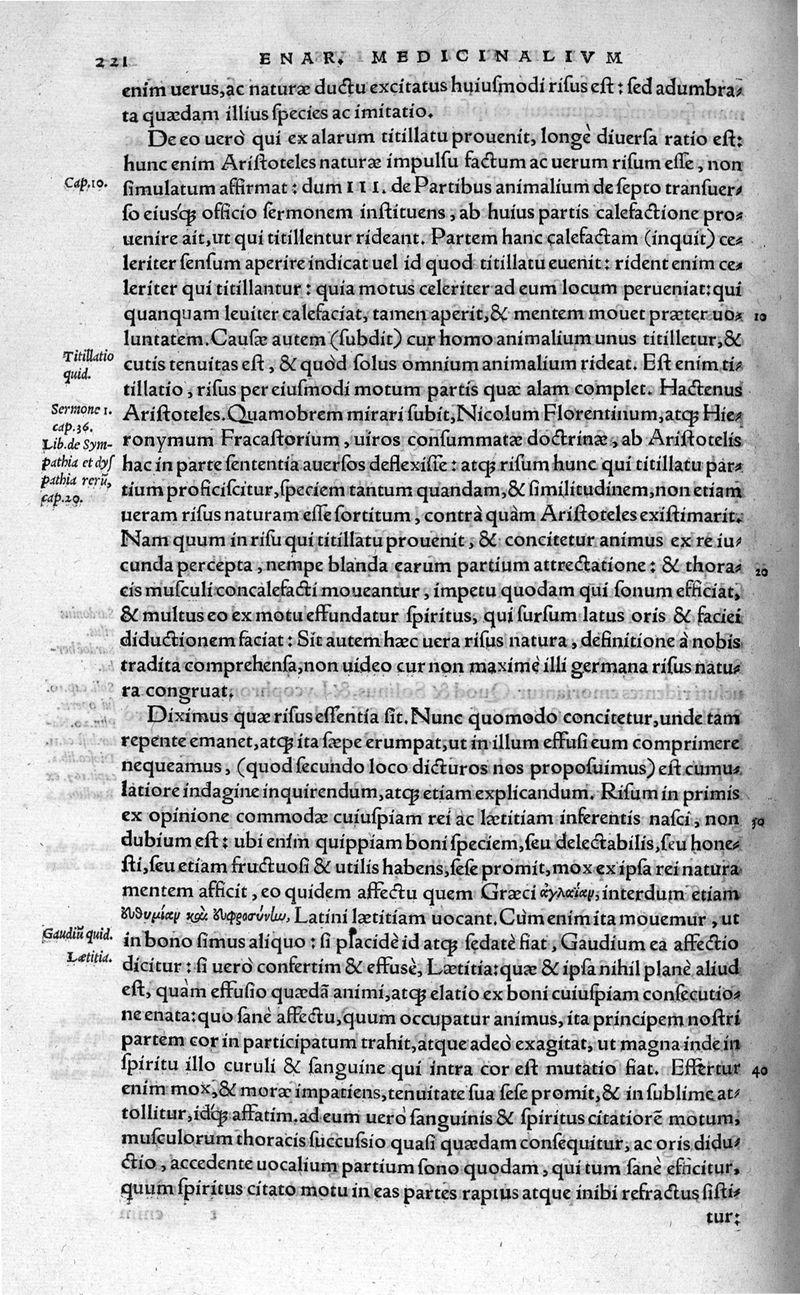 221 ENAR. MEDICINALIVM
enim uerus, ac naturæ ductu excitatus huiuſmodi riſus eſt: ſed adumbra-
ta quædam illius ſpecies ac imitatio.
De eo uerò qui ex alarum titillatu prouenit, longè diuerſa ratio eſt:
hunc enim Ariſtoteles naturæ impulſu factum ac uerum riſum eſſe, non
Cap. 10.
ſimulatum affirmat: dum III. de Partibus animalium de ſepto tranſuer-
ſo eiusꝗ́; officio ſermonem inſtituens, ab huius partis calefactione pro-
uenire ait, ut qui titillentur rideant. Partem hanc calefactam (inquit) ce-
leriter ſenſum aperire indicat uel id quod titillatu euenit: rident enim ce-
leriter qui titillantur: quia motus celeriter ad eum locum perueniat: qui
quanquam leuiter calefaciat, tamen aperit, & mentem mouet præter uo- 10
luntatem. Cauſæ autem (ſubdit) cur homo animalium unus titilletur, &
Titillatio
quid.
cutis tenuitas eſt, & quòd ſolus omnium animalium rideat. Eſt enim ti-
tillatio, riſus per eiuſmodi motum partis quæ alam complet. Hactenus
Sermone 1.
cap. 36.
Lib. de Sym-
pathia et dyſ
pathia rerũ,
cap. 20.
Ariſtoteles. Quamobrem mirari ſubit, Nicolum Florentinum, atꝗ; Hie-
ronymum Fracaſtorium, uiros conſummatæ doctrinæ, ab Ariſtotelis
hac in parte ſententia auerſos deflexiſſe: atꝗ; riſum hunc qui titillatu par-
tium proficiſcitur, ſpeciem tantum quandam, & ſimilitudinem, non etiam
ueram riſus naturam eſſe ſortitum, contrà quàm Ariſtoteles exiſtimarit.
Nam quum in riſu qui titillatu prouenit, & concitetur animus ex re iu-
cunda percepta, nempe blanda earum partium attrectatione: & thora- 20
cis muſculi concalefacti moueantur, impetu quodam qui ſonum efficiat,
& multus eo ex motu effundatur ſpiritus, qui ſurſum latus oris & faciei
diductionem faciat: Sit autem hæc uera riſus natura, definitione à nobis
tradita comprehenſa, non uideo cur non maximè illi germana riſus natu-
ra congruat.
Diximus quæ riſus eſſentia ſit. Nunc quomodo concitetur, unde tam
repente emanet, atꝗ; ita ſæpe erumpat, ut in illum effuſi eum comprimere
nequeamus, (quod ſecundo loco dicturos nos propoſuimus) eſt cumu-
latiore indagine inquirendum, atꝗ; etiam explicandum. Riſum in primis
ex opinione commodæ cuiuſpiam rei ac lætitiam inferentis naſci, non 30
dubium eſt: ubi enim quippiam boni ſpeciem, ſeu delectabilis, ſeu hone-
ſti, ſeu etiam fructuoſi & utilis habens, ſeſe promit, mox ex ipſa rei natura
mentem afficit, eo quidem affectu quem Græci ἀγλαΐαν, interdum etiam
εὐθυμίαν καὶ εὐφροσύνην, Latini lætitiam uocant. Cùm enim ita mouemur, ut
Gaudiũ quid.
in bono ſimus aliquo: ſi placidè id atꝗ; ſedatè fiat, Gaudium ea affectio
Lætitia.
dicitur: ſi uerò confertim & effuſè, Lætitia: quæ & ipſa nihil planè aliud
eſt, quàm effuſio quædã animi, atꝗ; elatio ex boni cuiuſpiam conſecutio-
ne enata: quo ſanè affectu, quum occupatur animus, ita principem noſtri
partem cor in participatum trahit, atque adeò exagitat, ut magna inde in
ſpiritu illo curuli & ſanguine qui intra cor eſt mutatio fiat. Effertur 40
enim mox, & moræ impatiens, tenuitate ſua ſeſe promit, & in ſublime at-
tollitur, idꝗ́; affatim. ad eum uerò ſanguinis & ſpiritus citatiorẽ motum,
muſculorum thoracis ſuccuſſio quaſi quædam conſequitur, ac oris didu-
ctio, accedente uocalium partium ſono quodam, qui tum ſanè efficitur,
quum ſpiritus citato motu in eas partes raptus atque inibi refractus ſiſti-
tur: